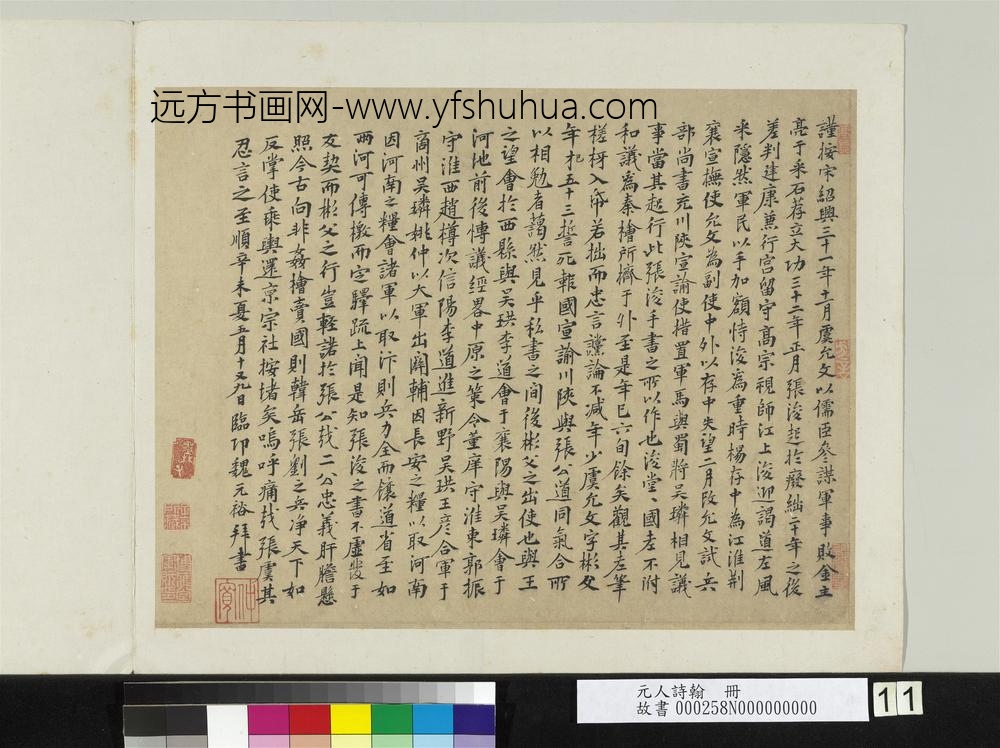 远方书画网-www.yfshuhua.com
謹按宋紹興三十一年十一月虞允文以儒臣參謀軍事敗金主
亮于采石荐立大功三十二年正月張浚起於廢絀二十年之後
差判建康兼行宮留守高宗視師江上浚迎謁道左風
采隱然軍民以手加額恃浚為重時楊存中為江淮荆
襄宣撫使允文為副使中外以存中失望二月改允文試兵
部尚書充川陝宣諭使措置軍馬與蜀將吳璘相見議
事當其起行此張浚手書之所以作也浚堂堂國老不附
和議為秦檜所擠于外至是年已六旬餘矣觀其左筆
槎枒入帋若拙而忠言讜論不減年少虞允文字彬父
年札五十三誓死報國宣諭川陝與張公道同氣合所
以相勉者藹然見乎私書之間後彬父之出使也與王
之望會於西縣與吳珙李道會于襄陽與吳璘會于
河池前後愽議經畧中原之策令董庠守淮東郭振
守淮西趙樽次信陽李道進新野吳珙王彥合軍于
商州吳璘姚仲以大軍出關輔因長安之糧以取河南
因河南之糧會諸軍以取汴則兵力全而饟道省至如
兩河可傳檄而定驛疏上聞是知張浚之書不虛發于
友契而彬父之行豈輕諾於張公哉二公忠義肝膽懸
照今古向非姦檜賣國則韓岳張劉之兵净天下如
反掌使乘輿還京宗社按堵矣嗚呼痛哉張虞其
忍言之至順辛未夏五月十又九日臨卭魏元裕拜書
元人詩翰 冊
故書000258N000000000
11